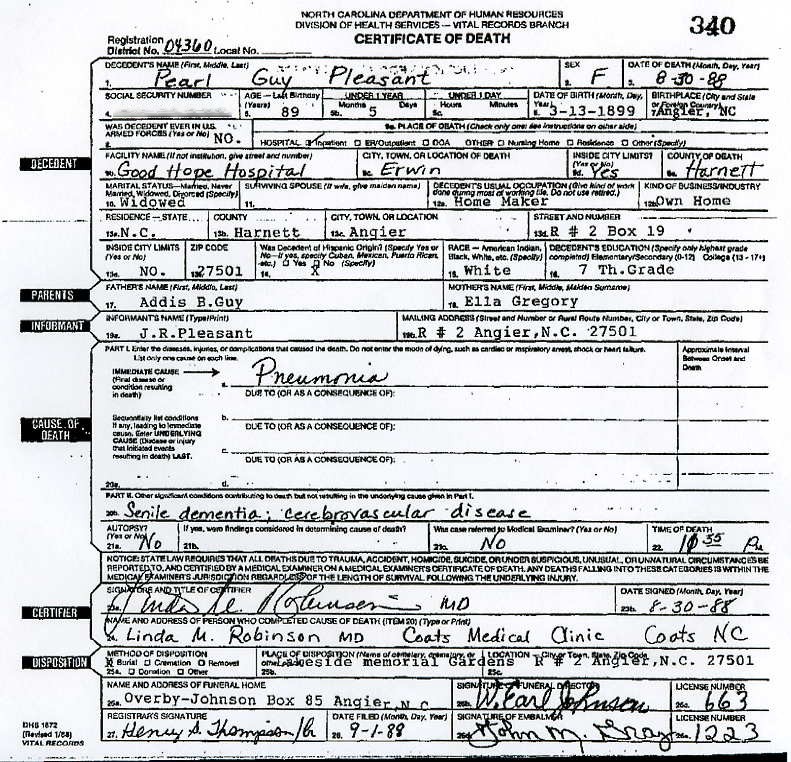 NORTH CAROLINA DEPARTMENT OF HUMAN RESOURCES
DIVISION OF HEALTH SERVICES – VITAL RECORDS BRANCH
CERTIFICATE OF DEATH
340
Registration District No. 04360 Local No.
DECEDENT'S NAME (First, Middle, Last) SEX DATE OF DEATH (Month, Day, Year)
1. Pearl Guy Pleasant 2. F 3. 8-30-88
SOCIAL SECURITY NUMBER AGE—Last Birthday (Years) UNDER 1 YEAR Months Days UNDER 1 DAY Hours Minutes DATE OF BIRTH (Month, Day, Year) BIRTHPLACE (City and State or Foreign Country)
4. 5a. 89 5b. 5 5c. 6. 3-13-1899 7. Angier, NC
WAS DECEDENT EVER IN U.S. ARMED FORCES? (Yes or No) 9a. PLACE OF DEATH (Check only one: see instructions on other side)
8. NO. HOSPITAL: Inpatient ER/Outpatient DOA OTHER: Nursing Home Residence Other (Specify)
DECEDENT
FACILITY NAME (If not institution, give street and number) CITY, TOWN, OR LOCATION OF DEATH INSIDE CITY LIMITS? (Yes or No) COUNTY OF DEATH
9b. Good Hope Hospital 9c. Erwin 9d. Yes 9e. Harnett
MARITAL STATUS—Married, Never Married, Widowed, Divorced (Specify) SURVIVING SPOUSE (If wife, give maiden name) DECEDENT'S USUAL OCCUPATION (Give kind of work done during most of working life. Do not use retired.) KIND OF BUSINESS/INDUSTRY
10. Widowed 11. 12a. Home Maker 12b. Own Home
RESIDENCE – STATE COUNTY CITY, TOWN, OR LOCATION STREET AND NUMBER
13a. N.C. 13b. Harnett 13c. Angier 13d. R # 2 Box 19
INSIDE CITY LIMITS (Yes or No) ZIP CODE Was Decedent of Hispanic Origin? (Specify Yes or No—If yes, specify Cuban, Mexican, Puerto Rican, etc.) Yes No (Specify) RACE – American Indian, Black, White, etc. (Specify) DECEDENT'S EDUCATION (Specify only highest grade completed) Elementary/Secondary (0-12) College (13 - 17+)
13e. NO. 13f. 27501 14. X 15. White 16. 7 Th.Grade
PARENTS
FATHER'S NAME (First, Middle, Last) MOTHER'S NAME (First, Middle, Maiden Surname)
17. Addis B.Guy 18. Ella Gregory
INFORMANT
INFORMANT'S NAME (Type/Print) MAILING ADDRESS (Street and Number or Rural Route Number, City or Town, State, Zip Code)
19a. J.R.Pleasant 19b. R # 2 Angier,N.C. 27501
PART I. Enter the diseases, injuries, or complications that caused the death. Do not enter the mode of dying, such as cardiac or respiratory arrest, shock or heart failure.
List only one cause on each line.
Approximate Interval Between Onset and Death
IMMEDIATE CAUSE (Final disease or condition resulting in death)
a. Pneumonia
DUE TO (OR AS A CONSEQUENCE OF):
CAUSE OF DEATH
Sequentially list conditions if any, leading to immediate cause. Enter UNDERLYING CAUSE (Disease or injury that initiated events resulting in death) LAST.
b.
DUE TO (OR AS A CONSEQUENCE OF):
c.
DUE TO (OR AS A CONSEQUENCE OF):
20a. d.
PART II. Other significant conditions contributing to death but not resulting in the underlying cause given in Part I.
20b. Senile dementia; cerebrovascular disease
AUTOPSY? (Yes or No) If yes, were findings considered in determining cause of death? Was case referred to Medical Examiner? (Yes or No) TIME OF DEATH
21a. No 21b. 21c. No 22.
NOTICE: STATE LAW REQUIRES THAT ALL DEATHS DUE TO TRAUMA, ACCIDENT, HOMICIDE, SUICIDE, OR UNDER SUSPICIOUS, UNUSUAL, OR UNNATURAL CIRCUMSTANCES BE
REPORTED TO, AND CERTIFIED BY A MEDICAL EXAMINER ON A MEDICAL EXAMINER'S CERTIFICATE OF DEATH. ANY DEATHS FALLING INTO THESE CATEGORIES IS WITHIN THE
MEDICAL EXAMINER'S JURISDICTION REGARDLESS OF THE LENGTH OF SURVIVAL FOLLOWING THE UNDERLYING INJURY.
CERTIFIER
SIGNATURE AND TITLE OF CERTIFIER DATE SIGNED (Month, Day, Year)
23a. Linda M. Robinson MD 23b. 8-30-88
NAME AND ADDRESS OF PERSON WHO COMPLETED CAUSE OF DEATH (ITEM 20) (Type or Print)
24. Linda M. Robinson MD Coats Medical Clinic Coats NC
DISPOSITION
METHOD OF DISPOSITION PLACE OF DISPOSITION (Name of cemetery, crematory, or other place) LOCATION – City or Town, State, Zip Code
Burial Cremation Removal memorial Gardens R # 2 Angier,N.C. 27501
25a. Donation Other 25b. 25c.
NAME AND ADDRESS OF FUNERAL HOME SIGNATURE OF FUNERAL DIRECTOR LICENSE NUMBER
26a. Overby-Johnson Box 85 Angier,N.C 26b. W. Earl Johnson 26c. 663
REGISTRAR'S SIGNATURE DATE FILED (Month, Day, Year) SIGNATURE OF EMBALMER LICENSE NUMBER
27. Henry S. Thompson/ 28. 9-1-88 26d. John M. Gray 26e. 1223
DHS 1872
(Revised 1/88)
VITAL RECORDS